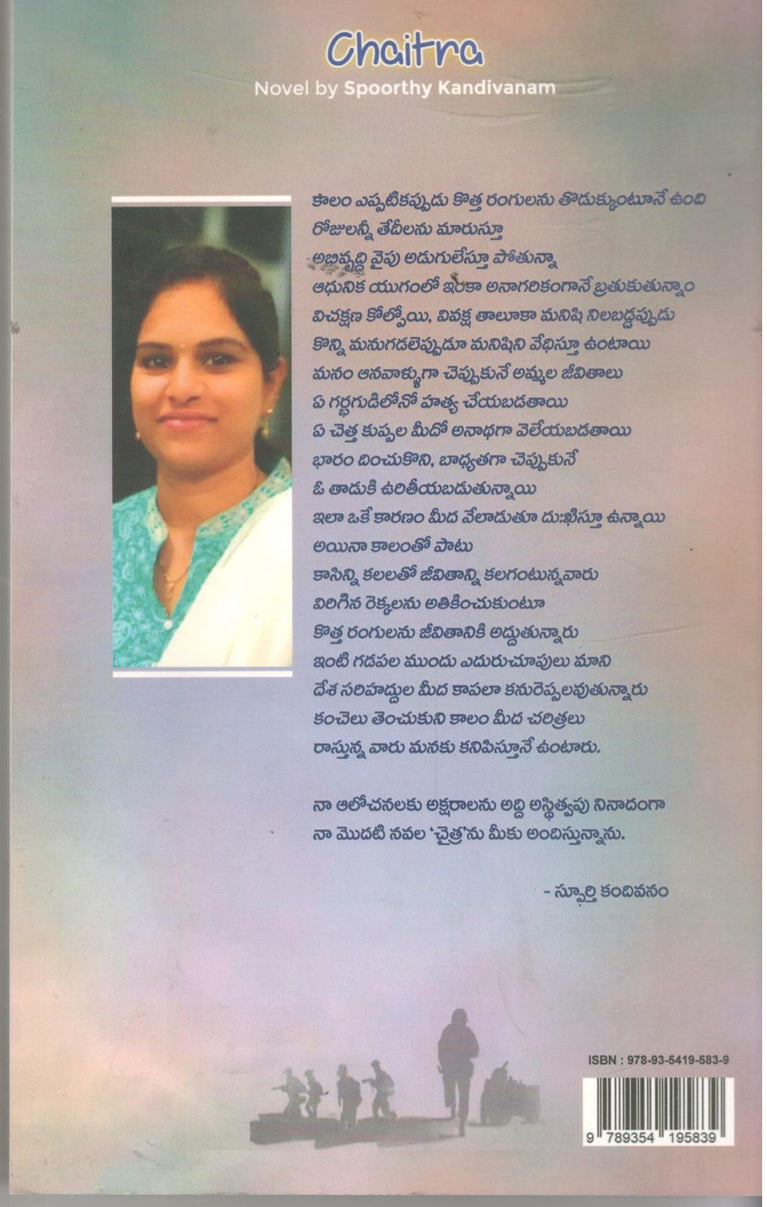 Chaitra
Novel by Spoorthy Kandivanam
కాలం ఎప్పటికప్పుడు కొత్త రంగులను తొడుక్కుంటూనే ఉంది
రోజులన్నీ తేదీలను మారుస్తూ
అభివృద్ధి వైపు అడుగులేస్తూ పోతున్నా
ఆధునిక యుగంలో ఇంకా అనాగరికంగానే బ్రతుకుతున్నాం
విచక్షణ కోల్పోయి, వివక్ష తాలూకా మనిషి నిలబడ్డప్పుడు
కొన్ని మనుగడలెప్పుడూ మనిషిని వేధిస్తూ ఉంటాయి
మనం ఆనవాళ్ళుగా చెప్పుకునే అమ్మల జీవితాలు
ఏ గర్భగుడిలోనో హత్య చేయబడతాయి
ఏ చెత్త కుప్పల మీదో అనాథగా వెలేయబడతాయి
భారం దించుకొని, బాధ్యతగా చెప్పుకునే
ఓ తాడుకి ఉరితీయబడుతున్నాయి
ఇలా ఒకే కారణం మీద వేలాడుతూ దుఃఖిస్తూ ఉన్నాయి
అయినా కాలంతో పాటు
కాసిన్ని కలలతో జీవితాన్ని కలగంటున్నవారు
విరిగిన రెక్కలను అతికించుకుంటూ
కొత్త రంగులను జీవితానికి అద్దుతున్నారు
ఇంటి గడపల ముందు ఎదురుచూపులు మాని
దేశ సరిహద్దుల మీద కాపలా కనురెప్పలవుతున్నారు
కంచెలు తెంచుకుని కాలం మీద చరిత్రలు
రాస్తున్న వారు మనకు కనిపిస్తూనే ఉంటారు.
నా ఆలోచనలకు అక్షరాలను అద్ది అస్థిత్వపు నినాదంగా
నా మొదటి నవల ‘చైత్ర’ను మీకు అందిస్తున్నాను.
- స్ఫూర్తి కందివనం
ISBN : 978-93-5419-583-9
9 789354 195839